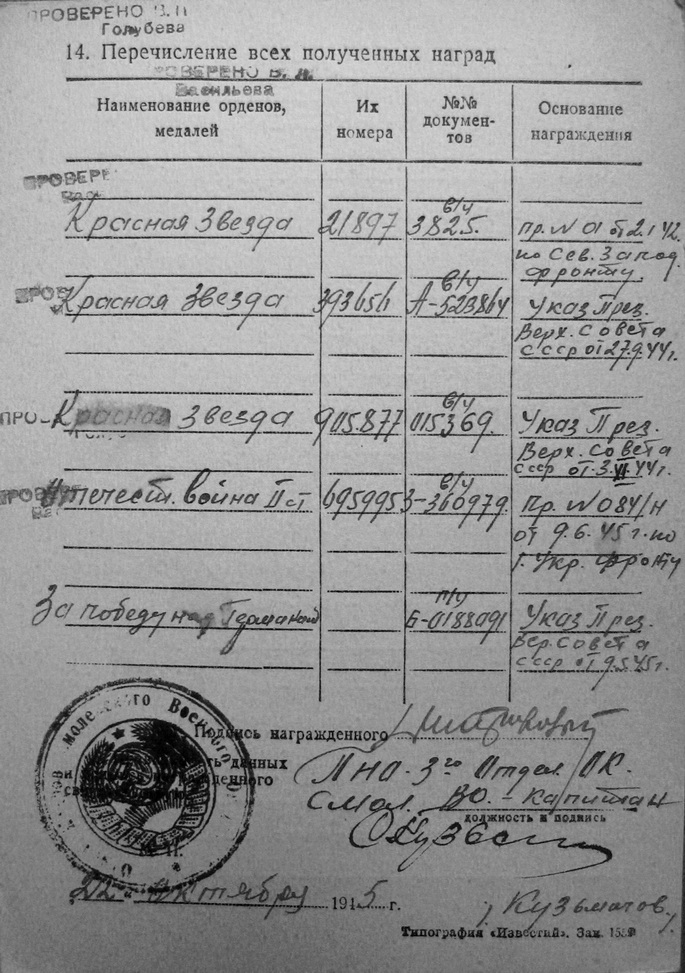 ПРОВЕРЕНО В.П
Голубева
14. Перечисление всех полученных наград
ОВЕРЕНО В. Л.
Васильева
Наименование орденов, медалей
Их номера
№№ докумен-тов
Основание награждения
ПРОВЕРЕ
в/ч
Красная Звезда 21897 3825. пр. N 01 от 2.1 42.
по Сев. Запад.
фронту.
в/ч
ПРОВ Красная Звезда 393656 А-523864 Указ През.
Верх. Совета
СССР от 27.9.44г.
в/ч
ПРО Красная Звезда 905.877 015369. Указ През.
Верх. Совета
СССР от 3.VI.44г.
в/ч
ПРОВЕРЕ Отечест. война II ст 695995 З-360979. Пр. N 084/н
от 9.6.45 г. по
1. Укр. Фронту
п/ч
За победу над Германией Б-0188091 Указ През.
Вер. Совета
СССР от 9.5.45г.
моленского Военного
Подпись награжденного
данных
денного
ПНО-3го Отдел. ОК.
Смол. ВО. - Капитан
должность и подпись
22 октября 1945 г.
Типография «Известий». Зак.